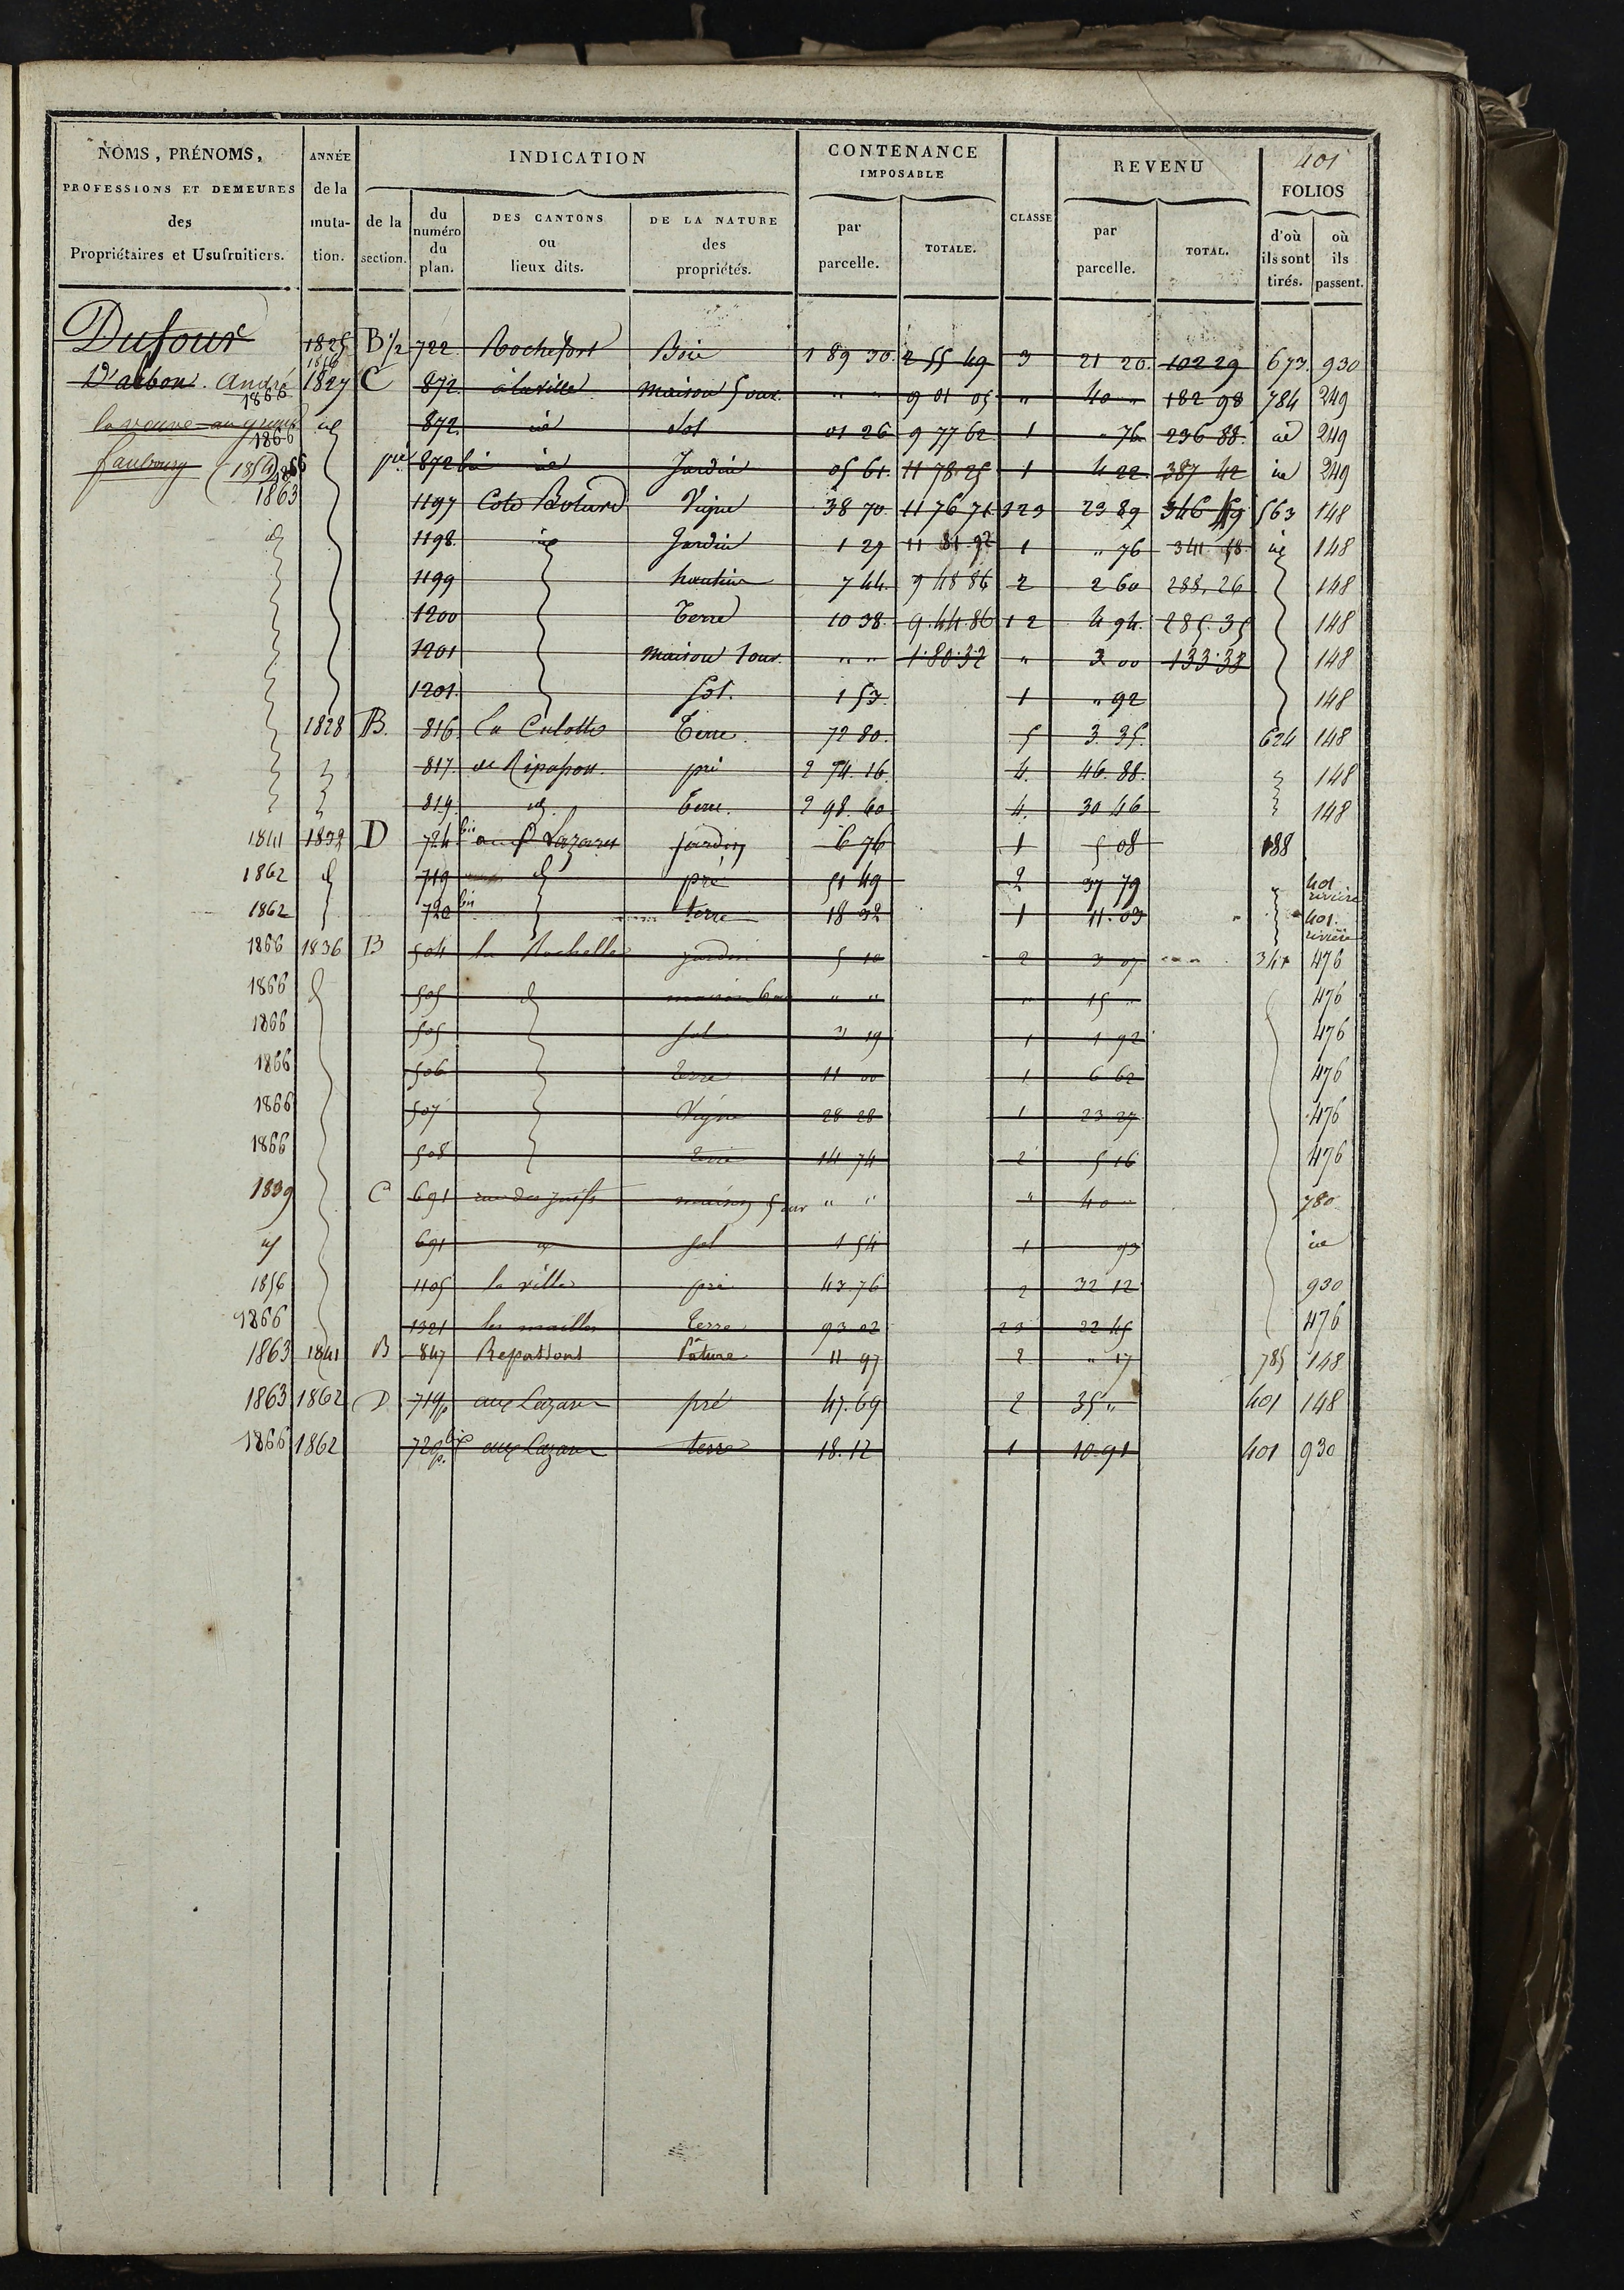 401
NOMS, PRÉNOMS, PROFESSIONS ET DEMEURES des Propriétaires et Usufruitiers.
ANNÉE de la mutation.
INDICATION
de la section.
du numéro du plan.
DES CANTONS ou lieux dits.
DE LA NATURE des propriétés.
CONTENANCE IMPOSABLE
par parcelle.
TOTALE.
CLASSE
REVENU
par parcelle.
TOTAL.
FOLIOS
d'où ils sont tirés.
où ils passent.
Dufour 1825 B 1/2 722 Rochefort Bois 1 89 30 2 55 49 3 21 20 102 29 673 930
1856
D'arbon. André 1827 C 872 à la ville Maison 5 ouv. " " 9 01 05 " 40 " 182 98 784 249
1866
la veuve au grand id 872 id Sol 01 26 9 77 62 1 " 76 236 88 id 249
1866
faubourg 1866 872 bis id Jardin 05 61 11 78 25 1 4 22 387 42 id 249
1863 1197 Cote Vigne 38 70 11 76 71 123 23 89 563 148
id 1198 id Jardin 1 29 1 " 76 id 148
1199 hautin 7 44 9 48 86 2 2 60 288.26 148
1200 Terre 10 38 9.44.86 1 2 4 94 285.35 148
1201 Maison 1 ouv. " " 1.80.32 " 3 00 133.38 148
1201 Sol. 1 53 1 " 92 148
1828 B. 816 La Culotte Terre 72 80 5 3.35 624 148
817 de Ripasson pré 2 74 16 4 46.88 148
819 id Terre 2 98.60 4 30 46 148
1841 1832 D 724 bis aux Lazares jardin 6 76 1 5 08 188
1862 d 719 d pré 51 49 2 37 79 401 rivière
1862 720 bis terre 18 32 1 11.03 401. rivière
1866 1836 B 504 la Rochelle jardin 5 10 2 3 07 347 476
1866 d 505 d maison 6 ou " " " 15 " 476
1866 505 sol 3 19 1 1 92 476
1866 506 Terre 11 00 1 6 62 476
1866 507 Vigne 28 28 1 23 27 476
1866 508 Terre 14 74 2 5 16 476
1839 C 691 rue des juifs maison 5 ouv " " " 40 " 780
id 691 id sol 1 54 1 93 id
1856 1105 la ville pré 43.76 2 32 12 930
1866 1321 les mailles terre 93 02 23 22 45 476
1863 1841 B 847 Repassons Pâture 11 97 2 " 17 785 148
1863 1862 D 719p aux Lazares pré 47.69 2 35 " 401 148
1866 1862 720 bis p. aux Lazares terre 18.12 1 10.91 401 930